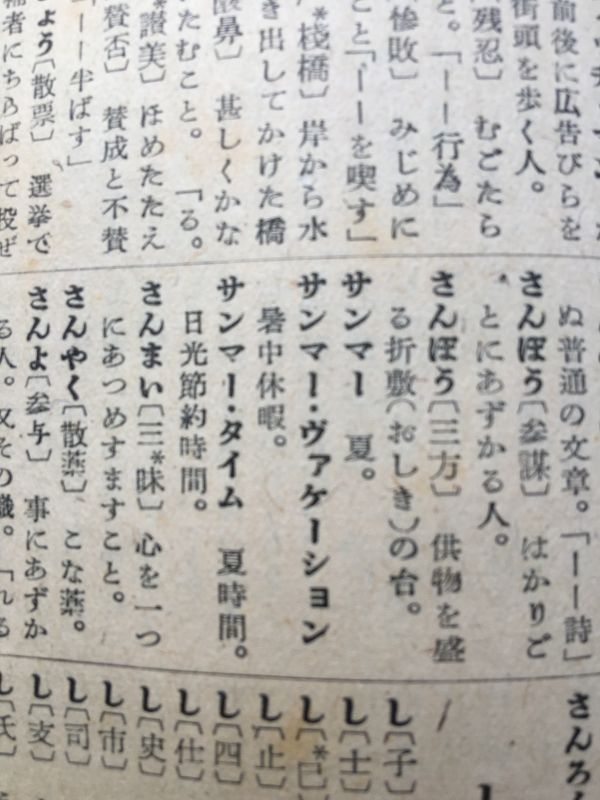 前後に広告びらを
街頭を歩く人。
残忍〕 むごたら
と。「――行為」
惨敗〕 みじめに
こと「――を喫す」
*桟橋〕 岸から水
き出してかけた橋
酸鼻〕 甚しくかな
いたむこと。 「る。
*讃美〕 ほめたたえ
賛否〕 賛成と不賛
「――半ばす」
ょう〔散票〕 選挙で
者にちらばって投ぜ
ぬ普通の文章。「――詩」
さんぼう〔参謀〕 はかりご
とにあずかる人。
さんぼう〔三方〕 供物を盛
る折敷(おしき)の台。
サンマー 夏。
サンマー・ヴァケーション
暑中休暇。
サンマー・タイム 夏時間。
日光節約時間。
さんまい〔三*昧〕 心を一つ
にあつめすますこと。
さんやく〔散薬〕 こな薬。
さんよ〔参与〕 事にあずか
る人。又その職。「れる
さんろく
し〔子〕
し〔士〕
し〔*巳〕
し〔止〕
し〔四〕
し〔仕〕
し〔史〕
し〔市〕
し〔司〕
し〔支〕
し〔氏〕